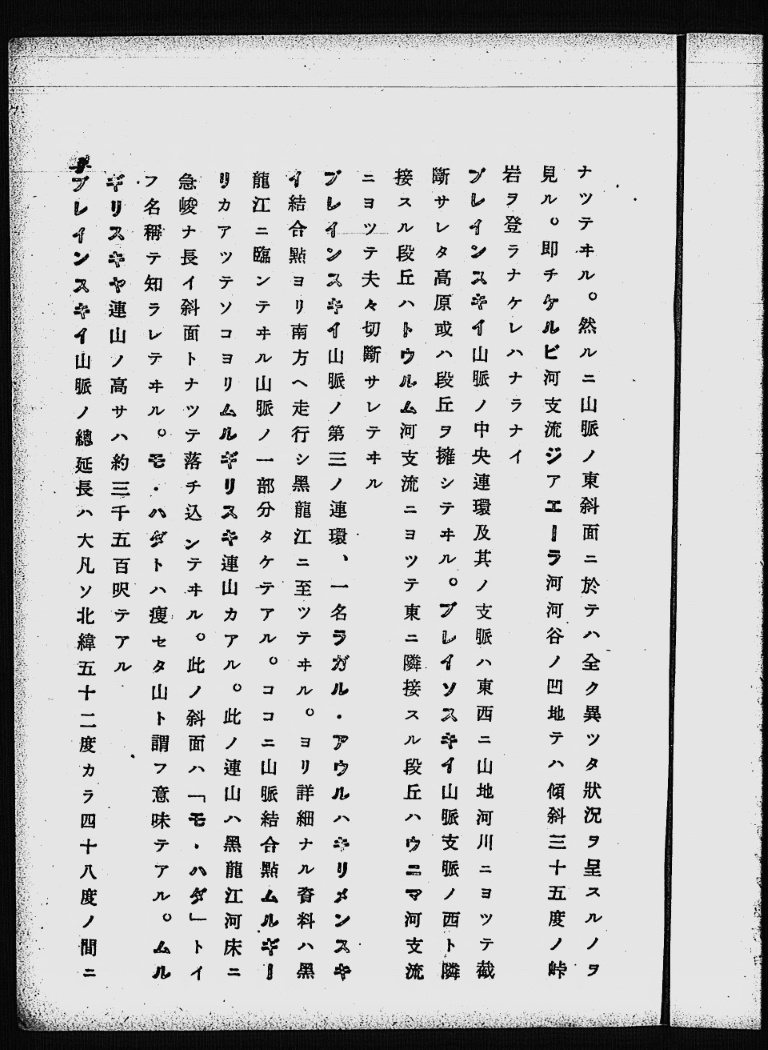 ナツテヰル。然ルニ山脈ノ東斜面ニ於テハ全ク異ツタ狀況ヲ呈スルノヲ
見ル。即チケルビ河支流ジアエーラ河河谷ノ凹地テハ傾斜三十五度ノ峠
岩ヲ登ラナケレハナラナイ
ブレインスキイ山脈ノ中央連環及其ノ支脈ハ東西ニ山地河川ニヨツテ截
斷サレタ高原或ハ段丘ヲ擁シテヰル。ブレイソスキイ山脈支脈ノ西ト隣
接スル段丘ハトウルム河支流ニヨツテ東ニ隣接スル段丘ハウニマ河支流
ニヨツテ夫々切斷サレテヰル
ブレインスキイ山脈ノ第三ノ連環、一名ラガル・アウルハキリメンスキ
イ結合點ヨリ南方ヘ走行シ黑龍江ニ至ツテヰル。ヨリ詳細ナル資料ハ黑
龍江ニ臨ンテヰル山脈ノ一部分タケテアル。ココニ山脈結合點ムルギー
リカアツテソコヨリムルギリスキ連山カアル。此ノ連山ハ黑龍江河床ニ
急峻ナ長イ斜面トナツテ落チ込ンテヰル。此ノ斜面ハ「モ・ハダ」トイ
フ名稱テ知ラレテヰル。モ・ハダトハ瘦セタ山ト謂フ意味テアル。ムル
ギリスキヤ連山ノ高サハ約三千五百呎テアル
ブレインスキイ山脈ノ總延長ハ大凡ソ北緯五十二度カラ四十八度ノ間ニ